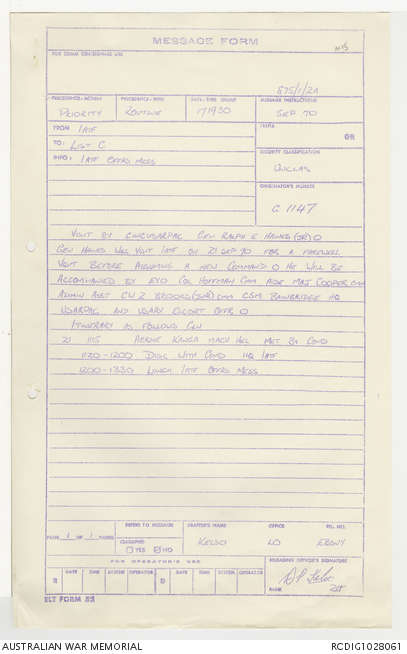 MESSAGE FORM
FOR COMM CEN/SIGNALS USE
875/1/21
PRECEDENCE-ACTION
PRIORITY
PRECEDENCE-INFO
ROUTINE
DATE-TIME GROUP
171930
MESSAGE INSTRUCTIONS
SEP 70
FROM 1ATF
PREFIX
GR
TO: LIST C
SECURITY CLASSIFICATION
UNCLAS
INFO: 1ATF OFFRS MESS
ORIGINATOR'S NUMBER
C 1147
VISIT BY CINCUSARPAC GEN RALPH E HAINES (JR) O
GEN HAINES WILL VISIT 1ATF ON 21 SEP 70 FOR A FAREWELL
VISIT BEFORE ASSUMING A NEW COMMAND O HE WILL BE
ACCOMPANIED BY EXO COL HOFFMAN CMM AIDE MAJ COOPER CMM
ADMIN ASST CW2 BROOKS (JNR) CMM CSM BAINBRIDGE HQ
USARPAC AND USARV ESCORT OFFR O
ITINERARY AS FOLLOWS CLN
21 1115 ARRIVE KANGA MACV HEL MET BY COMD
1120-1200 DISC WITH COMD HQ 1ATF
1200-1330 LUNCH 1ATF OFFRS MESS
PAGE 1 OF 1 PAGES
REFERS TO MESSAGE
CLASSIFIED
YES NO
DRAFTER'S NAME
KELSO
OFFICE
LO
TEL NO.
EBONY
FOR OPERATOR'S USE
RELEASING OFFICER'S SIGNATURE
R DATE TIME SYSTEM OPERATOR D DATE TIME SYSTEM OPERATOR
RANK
ELT FORM 55
AUSTRALIAN WAR MEMORIAL
RCDIG1028061